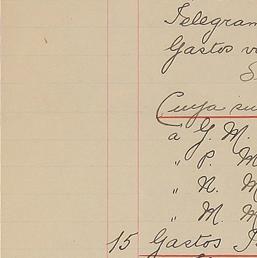 Telegram
Gastos v
S
Cuya su
a G. M.
" P. M
" N. M
" M. M
15 Gastos